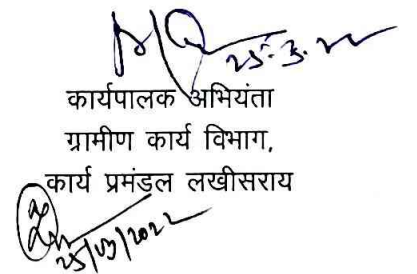 25.3.22
कार्यपालक अभियंता
ग्रामीण कार्य विभाग,
कार्य प्रमंडल लखीसराय
25/03/2022